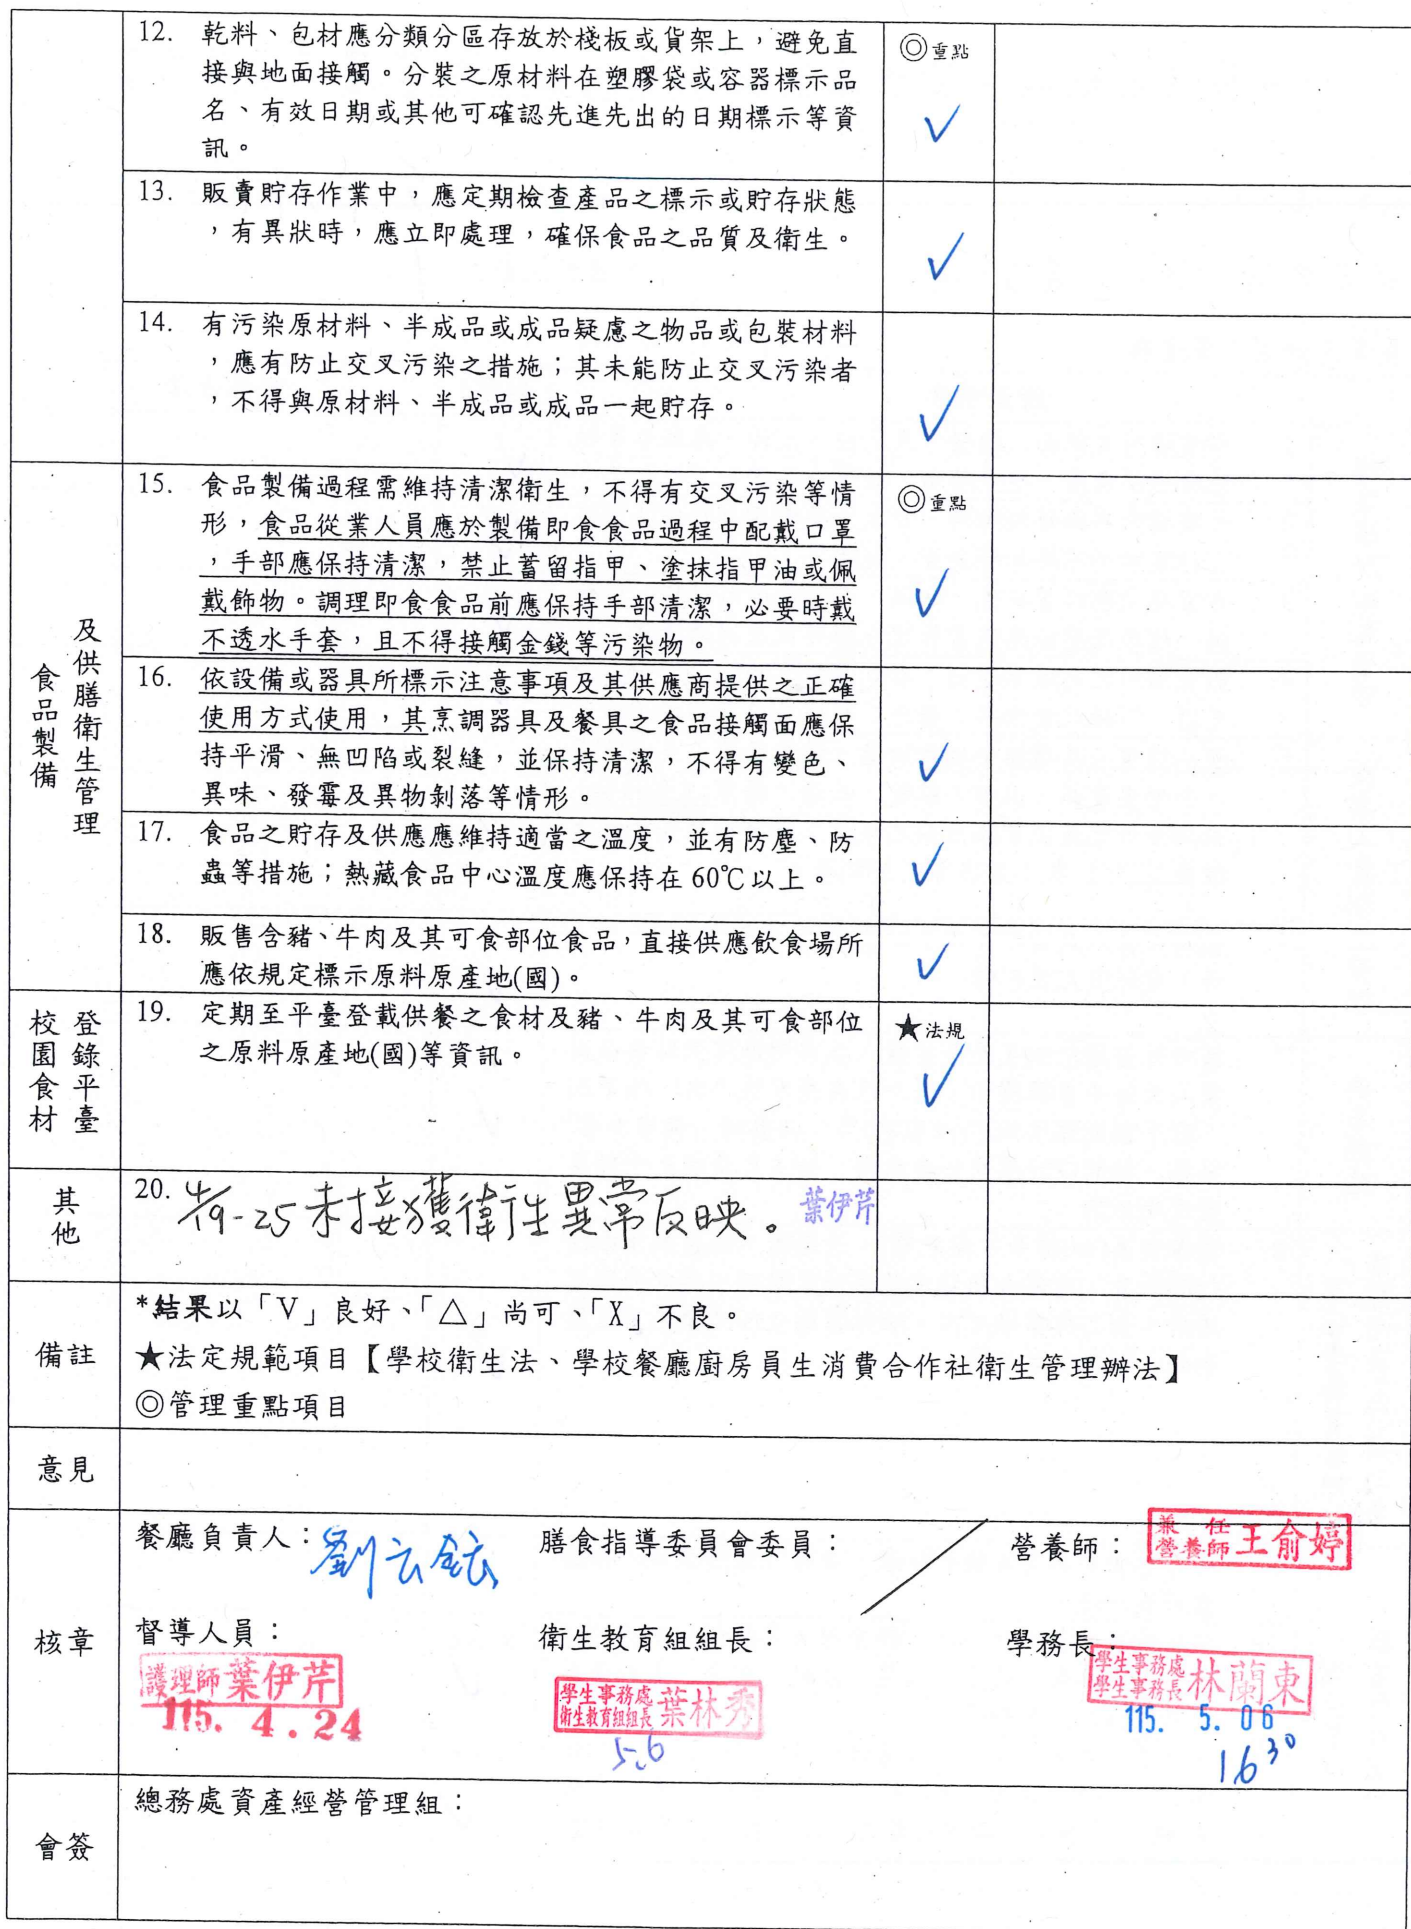 12. 乾料、包材應分類分區存放於棧板或貨架上，避免直
接與地面接觸。分裝之原材料在塑膠袋或容器標示品
名、有效日期或其他可確認先進先出的日期標示等資
訊。
◎重點
✓
13. 販賣貯存作業中，應定期檢查產品之標示或貯存狀態
，有異狀時，應立即處理，確保食品之品質及衛生。
✓
14. 有污染原材料、半成品或成品疑慮之物品或包裝材料
，應有防止交叉污染之措施；其未能防止交叉污染者
，不得與原材料、半成品或成品一起貯存。
✓
食品製備
及供膳衛生管理
15. 食品製備過程需維持清潔衛生，不得有交叉污染等情
形，食品從業人員應於製備即食食品過程中配戴口罩
，手部應保持清潔，禁止蓄留指甲、塗抹指甲油或佩
戴飾物。調理即食食品前應保持手部清潔，必要時戴
不透水手套，且不得接觸金錢等污染物。
◎重點
✓
16. 依設備或器具所標示注意事項及其供應商提供之正確
使用方式使用，其烹調器具及餐具之食品接觸面應保
持平滑、無凹陷或裂縫，並保持清潔，不得有變色、
異味、發霉及異物剝落等情形。
✓
17. 食品之貯存及供應應維持適當之溫度，並有防塵、防
蟲等措施；熱藏食品中心溫度應保持在 60℃以上。
✓
18. 販售含豬、牛肉及其可食部位食品，直接供應飲食場所
應依規定標示原料原產地(國)。
✓
校園食材
登錄平臺
19. 定期至平臺登載供餐之食材及豬、牛肉及其可食部位
之原料原產地(國)等資訊。
★法規
✓
其他
20. 4/19-25未接獲衛生異常反映。 葉伊芹
備註
*結果以「V」良好、「△」尚可、「X」不良。
★法定規範項目【學校衛生法、學校餐廳廚房員生消費合作社衛生管理辦法】
◎管理重點項目
意見
核章
餐廳負責人：
膳食指導委員會委員：
營養師：
兼任
營養師 王俞婷
督導人員：
衛生教育組組長：
學務長：
護理師 葉伊芹
115. 4. 24
學生事務處
衛生教育組組長 葉林秀
5.6
學生事務處
學生事務長 林蘭東
115. 5. 06
16³⁰
會簽
總務處資產經營管理組：